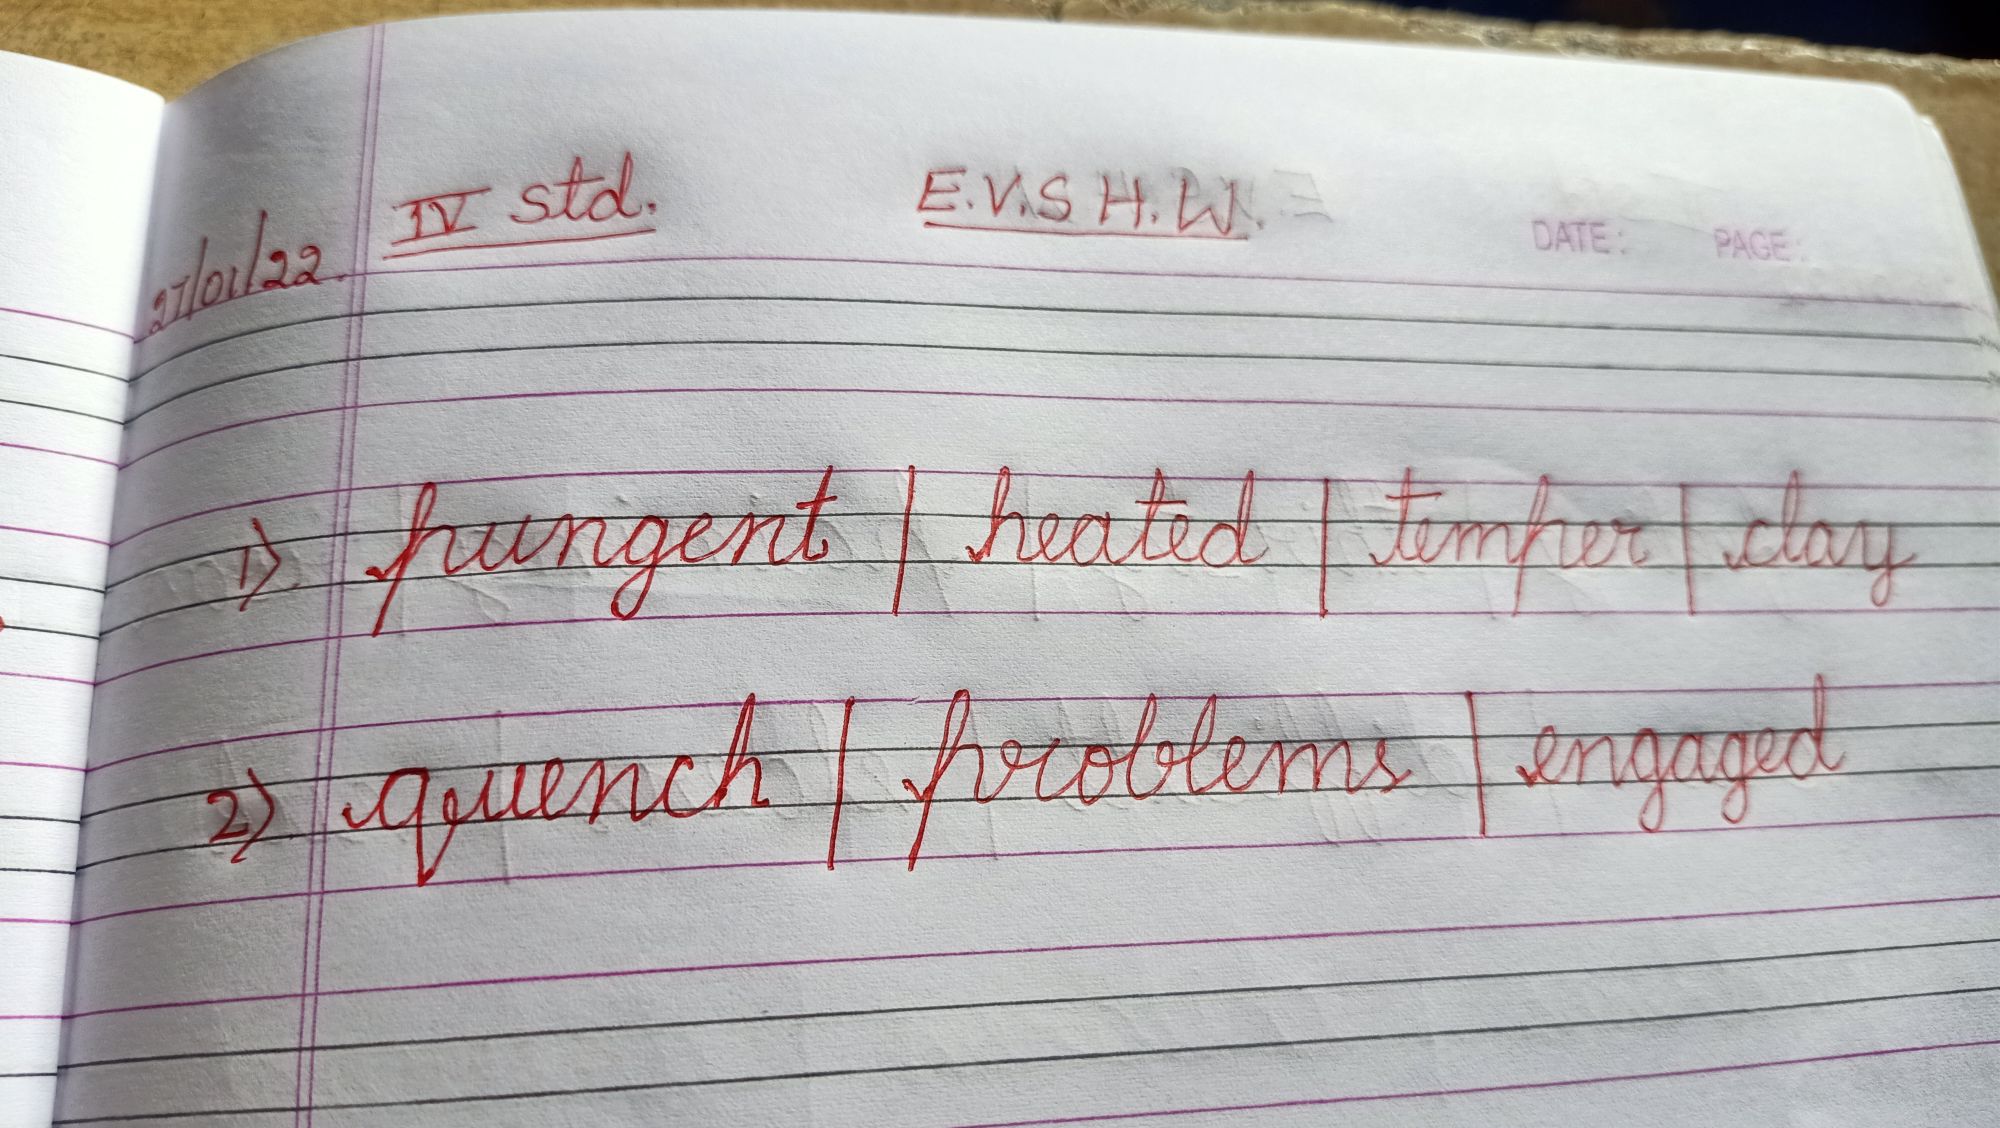 IV std. E.V.S H.W. DATE: PAGE:
27/01/22.
1) pungent | heated | temper | clay
2) quench | problems | engaged